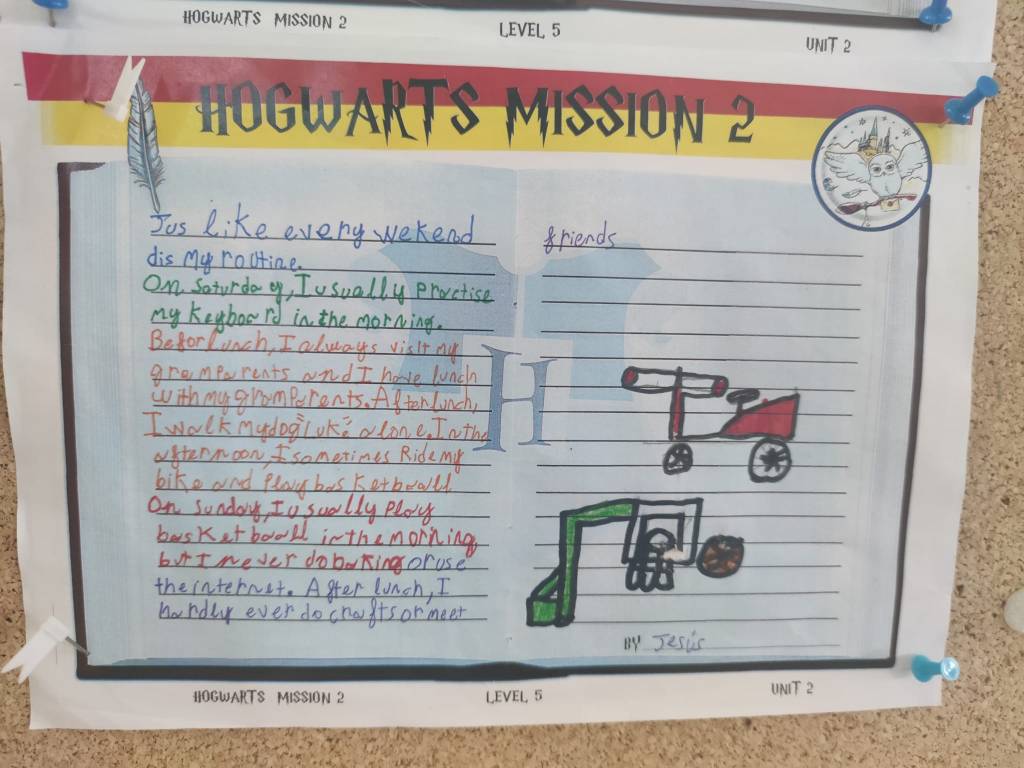 HOGWARTS MISSION 2 LEVEL 5 UNIT 2
HOGWARTS MISSION 2
Jus like every wekend
dis my routine.
On Saturday, I usually practise
my keyboard in the morning.
Befor lunch, I always visit my
gramparents and I have lunch
with my gramparents. After lunch,
I walk my dog luke alone. In the
afternoon, I sometimes Ride my
bike and play basketball
On sunday, I usually play
basketball in the morning
but I never do baking or use
the internet. After lunch, I
hardly ever do crafts or meet
friends
BY Jesús
HOGWARTS MISSION 2 LEVEL 5 UNIT 2
H